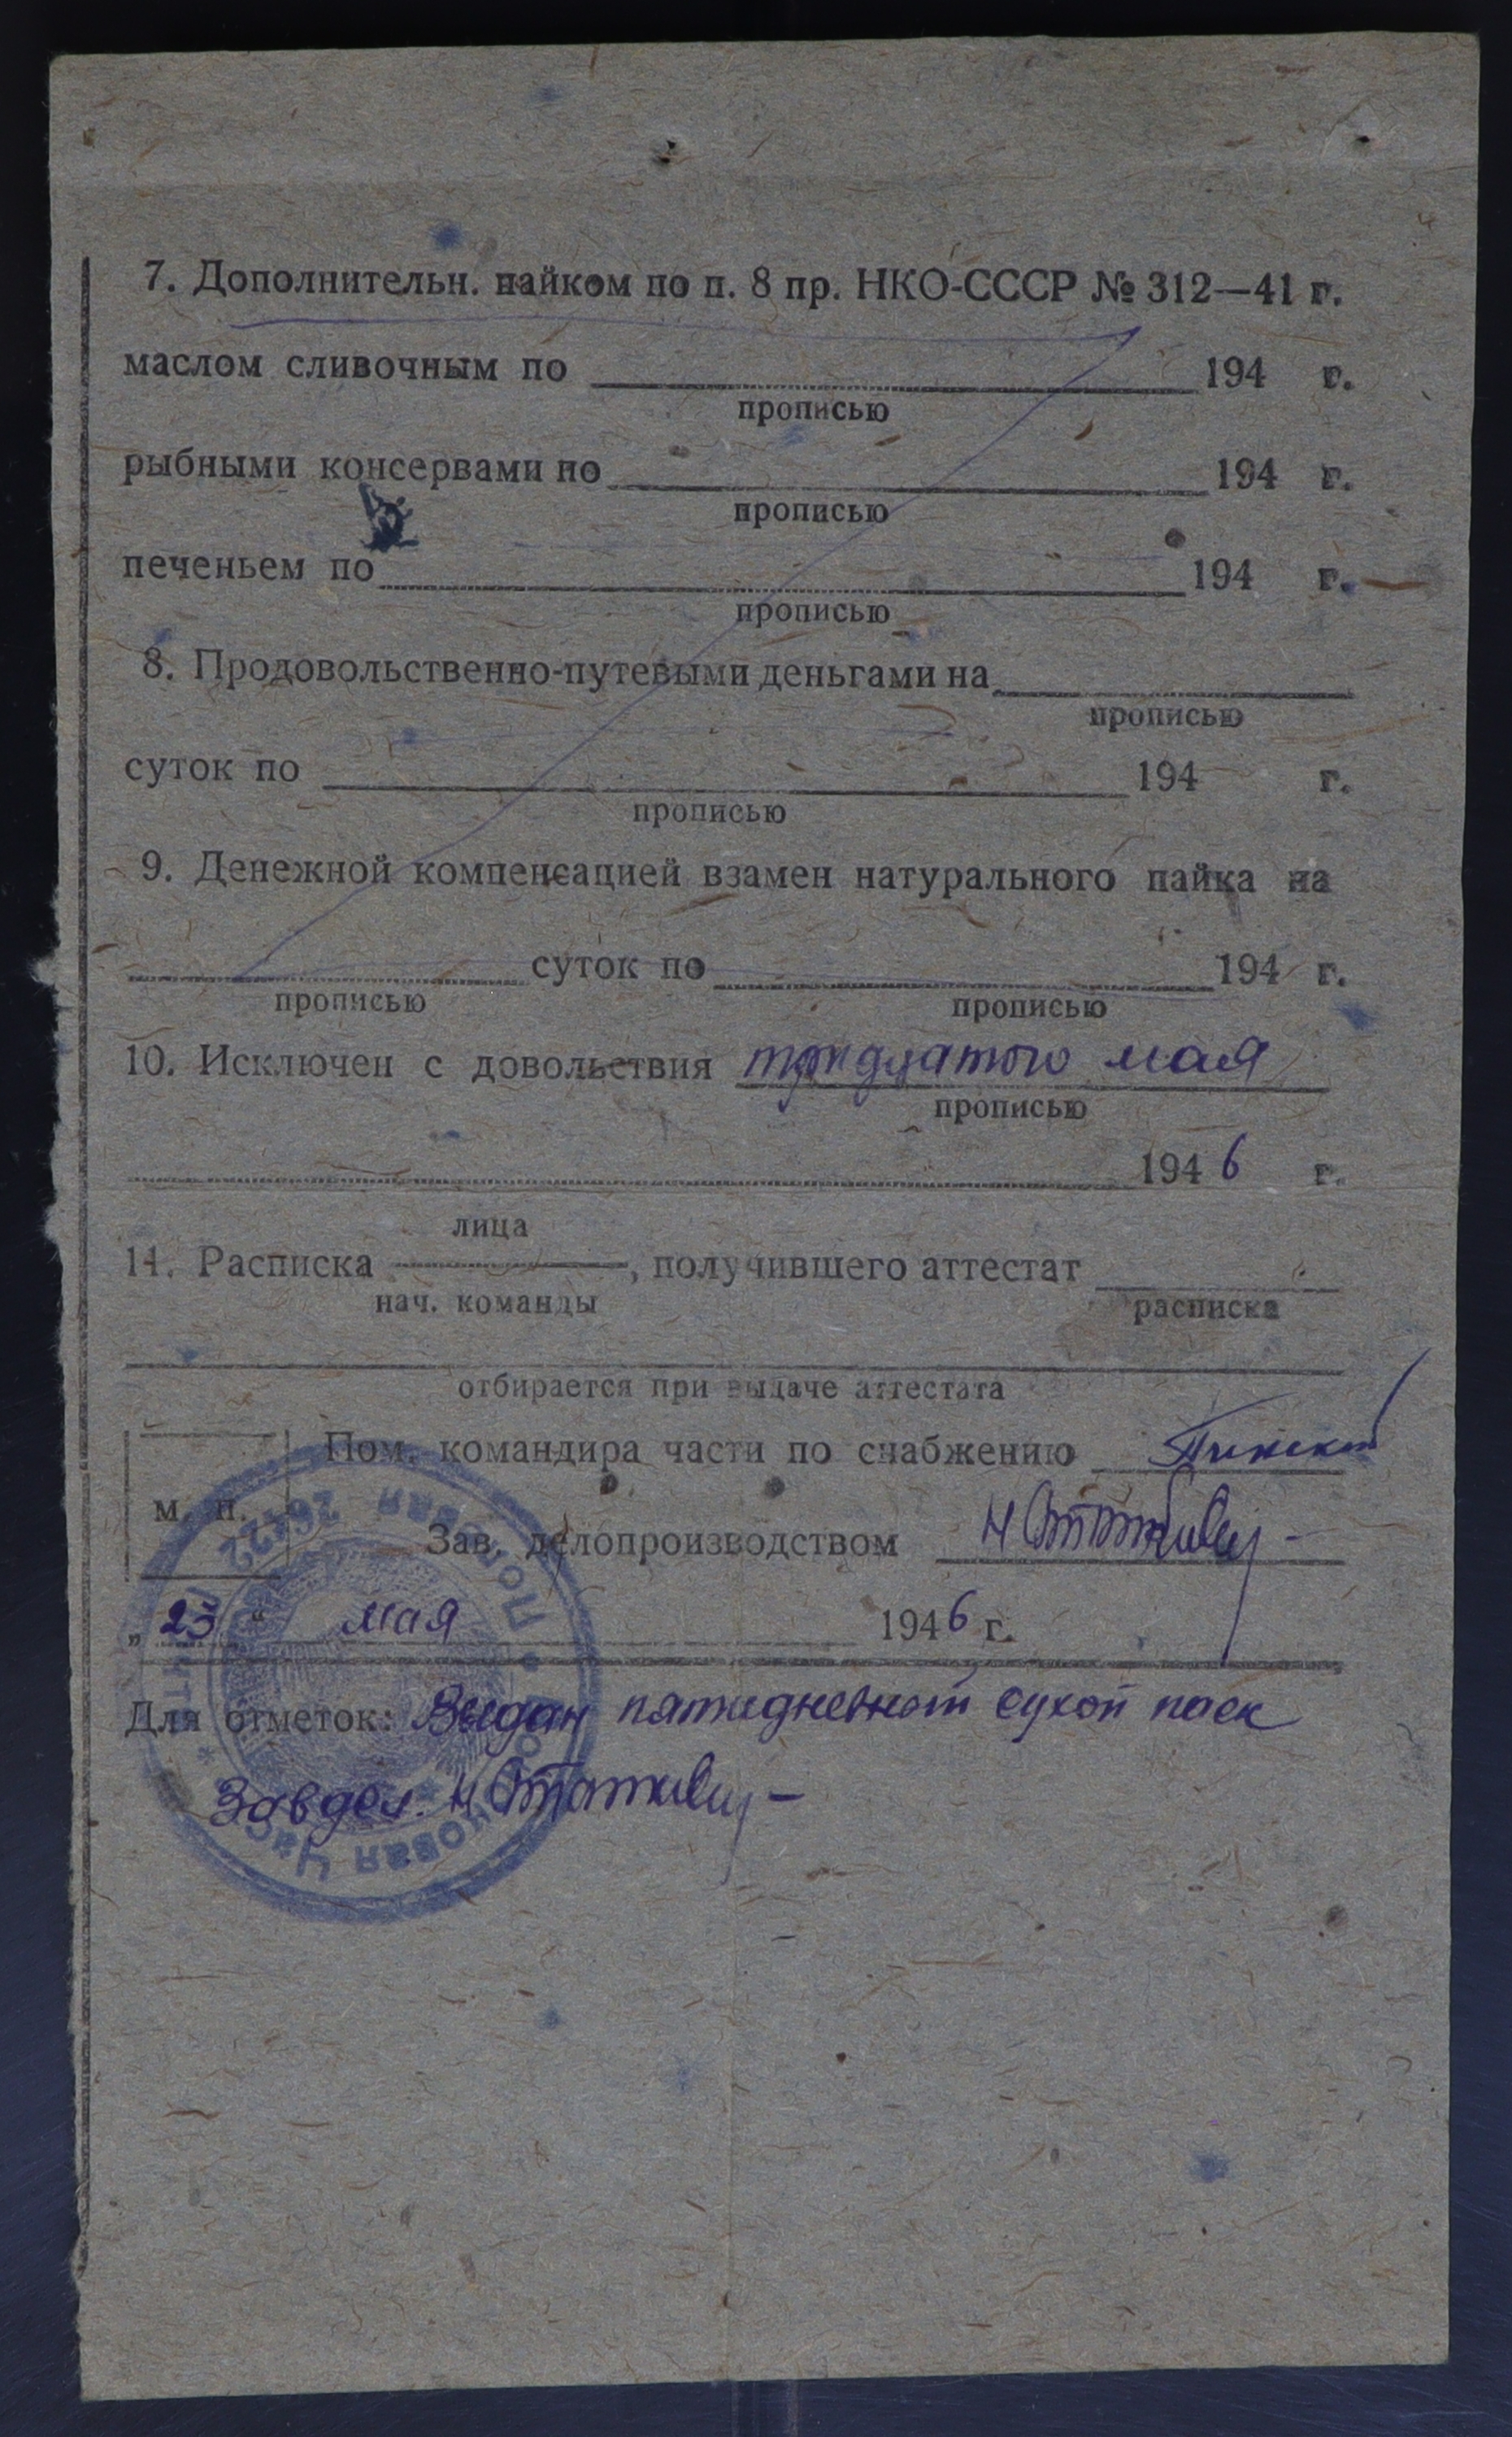 7. Дополнительн. пайком по п. 8 пр. НКО-СССР № 312—41 г.
маслом сливочным по 194 г.
прописью
рыбными консервами по 194 г.
прописью
печеньем по 194 г.
прописью
8. Продовольственно-путевыми деньгами на
прописью
суток по 194 г.
прописью
9. Денежной компенсацией взамен натурального пайка на
суток по 194 г.
прописью прописью
10. Исключен с довольствия тридцатого мая
прописью
1946 г.
лица
11. Расписка , получившего аттестат
нач. команды расписка
отбирается при выдаче аттестата
Пом. командира части по снабжению
м. п.
Зав. делопроизводством
„25“ мая 1946 г.
Для отметок: Выдан пятидневный сухой паек
Завдел.
Полевая Почта 26422
Войсковая Часть